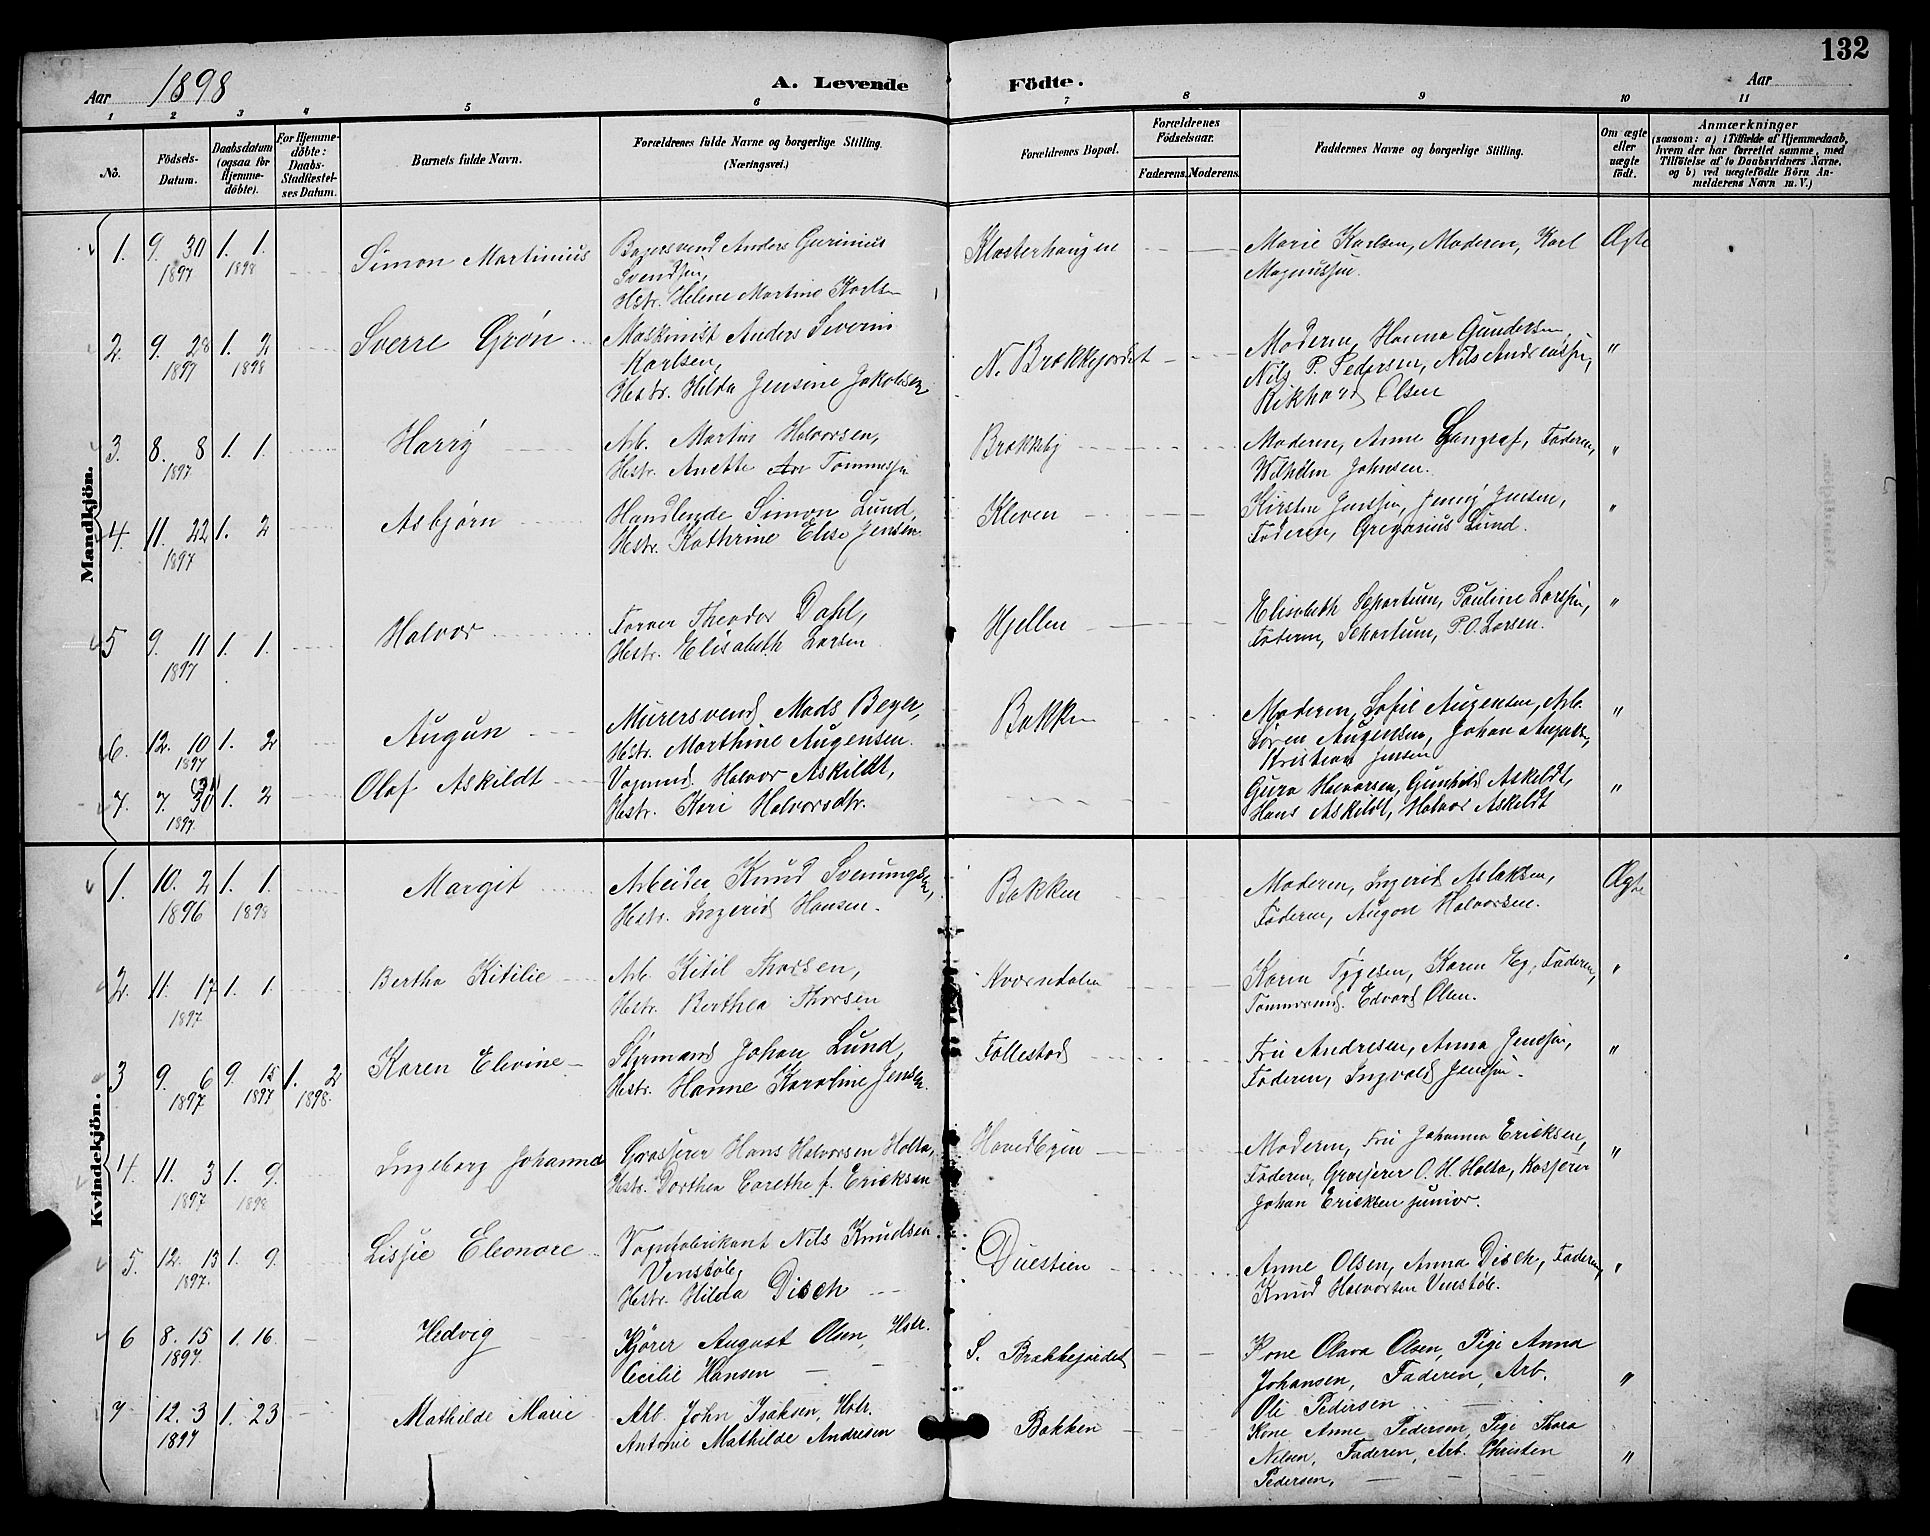 132
Aar 1898
A. Levende Födte.
Aar
1 2 3 4 5 6 7 8 9 10 11
No.
Födsels-Datum.
Daabsdatum (ogsaa for Hjemme-döbte).
For Hjemme-döbte: Daabs-Stadfæstel-ses Datum.
Barnets fulde Navn.
Forældrenes fulde Navne og borgerlige Stilling. (Næringsvei.)
Forældrenes Bopæl.
Forældrenes Födselsaar.
Faderens. Moderens.
Faddernes Navne og borgerlige Stilling.
Om ægte eller uægte födt.
Anmærkninger (saasom: a) i Tilfælde af Hjemmedaab, hvem der har forrettet samme, med Tilföielse af to Daabsvidners Navne, og b) ved uægtefödte Börn An-melderens Navn m. V.)
Mandkjön.
1. 9. 30 1897 1. 1. 1898 Simon Martinius
Bagersvend Anders Gurinius
Svendsen,
Hstr. Helene Martine Karlsen
Klosterhaugen
Marie Karlsen, Moderen, Karl
Magnussen.
Ægte
2. 9. 28 1897 1. 2 1898 Sverre Grøn
Maskinist Anders Severin
Karlsen,
Hstr. Hilda Jensine Jakobsen
N. Brækkejordet
Moderen, Hanna Gundersen,
Nils P. Pedersen, Nils Andreassen,
Rikhard Olsen
"
3. 8. 8 1897 1. 1. Harry
Arb. Martin Halvorsen,
Hstr. Anette Tommessen
Brækkeby
Moderen, Anne Langraf, Faderen,
Wilhelm Johnsen.
"
4. 11. 22 1897 1. 2 Asbjørn
Handlende Simon Lund,
Hstr. Kathrine Elise Jensen
Kleven
Kirsten Jenssen, Jenny Jensen,
Faderen, Gregorius Lund.
"
5 9. 11 1897 1. 1. Halvor
Farver Theodor Dahl,
Hstr. Elisabeth Larsen
Hjellen
Elisabeth Schortum, Pauline Larssen,
Faderen, Schortum, P. O. Larsen.
"
6. 12. 10 1897 1. 2 Augun
Murersvend Mads Beyer,
Hstr. Marthine Augensen.
Bakken
Moderen, Sofie Augensen, Arb.
Søren Augensen, Johan August,
Kristian Jensen
"
7. 7. 30 1897. 1. 2 Olaf Askildt
Vognmd. Halvor Askildt,
Hstr. Kari Halvorsdtr.
Guro Halvorsen, Gunhild Askildt,
Hans Askildt, Halvor Askildt
"
Kvindekjön.
1. 10. 2 1896 1. 1. 1898 Margit
Arbeider Knud Svenungsen,
Hstr. Ingerid Hansen.
Bakken
Moderen, Ingerid Aslaksen,
Faderen, Augon Halvorsen.
Ægte
2. 11. 17 1897 1. 1. Bertha Kitilie
Arb. Kitil Thorsen,
Hstr. Berthea Thorsen
Kværndalen
Karen Tygesen, Karen Eg, Faderen,
Tømmermd. Edvard Olsen.
"
3 9. 6 1897 9. 15 1897 1. 2 1898. Karen Elevine
Styrmand Johan Lund,
Hstr. Hanne Karoline Jensen.
Follestad
Fru Andresen, Anna Jenssen,
Faderen, Ingvald Jenssen.
"
4. 11. 3 1897 1. 9. 1898 Ingeborg Johanna
Grosserer Hans Halvorsen Holta,
Hstr. Dorthea Carethe f. Ericksen
Hovedbyen
Moderen, Fru Johanna Ericksen,
Faderen, Grosserer O. H. Holta, Kasserer
Johan Ericksen junior.
"
5. 12. 13 1897. 1. 9. Lissie Eleonore
Vognfabrikant Nils Knudsen
Venstøb,
Hstr. Hilda Disch
Duestien
Anne Olsen, Anna Disch, Faderen,
Knud Halvorsen Venstøb.
"
6 8. 15 1897. 1. 16. Hedvig
Kjører August Olsen, Hstr.
Cecilie Hansen
S. Brækkejordet
Kone Olava Olsen, Pige Anna
Johansen, Faderen, Arb.
Ole Pedersen
"
7 12. 3 1897 1. 23 Mathilde Marie
Arb. John Isaksen, Hstr.
Antonie Mathilde Andresen
Bakken
Kone Anne Pedersen, Pige Thora
Nilsen, Faderen, Arb. Christen
Pedersen,
"